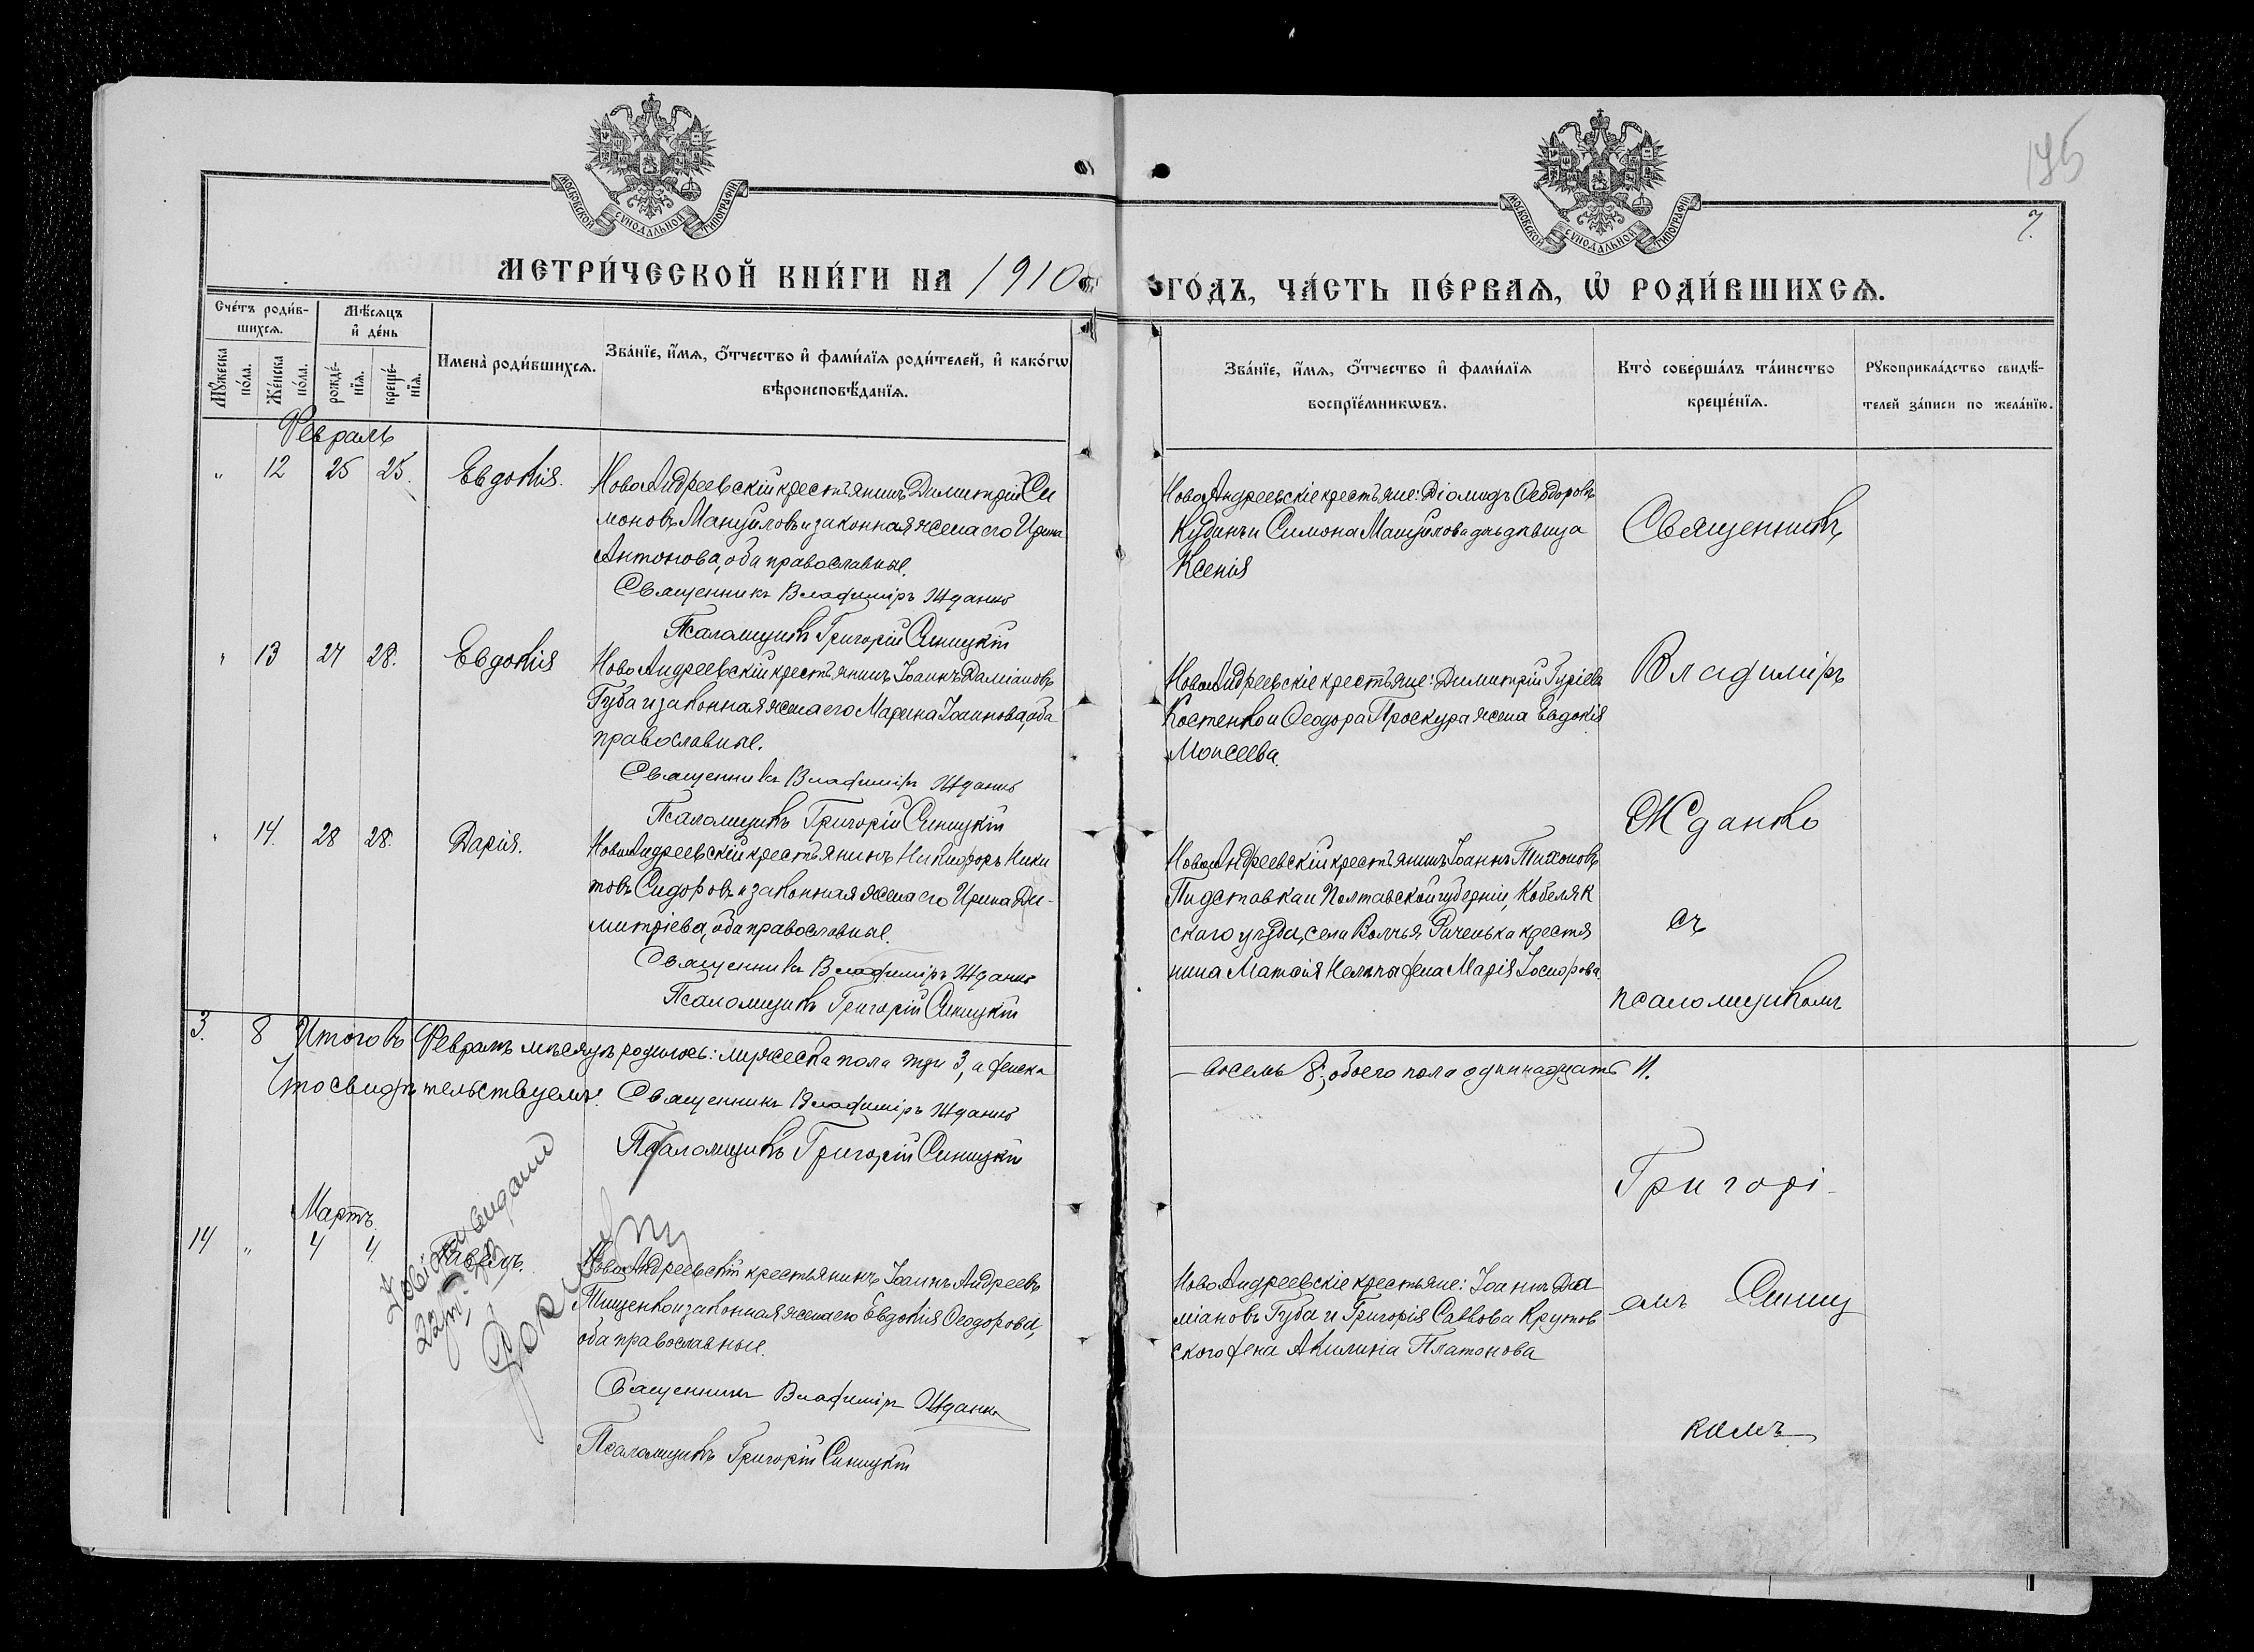 175
7.
МОСКОВСКОЙ СѴНОДАЛЬНОЙ ТИПОГРАФІИ
МОСКОВСКОЙ СѴНОДАЛЬНОЙ ТИПОГРАФІИ
МЕТРИ́ЧЕСКОЙ КНИ́ГИ НА 1910
ГО́ДЪ, ЧА́СТЬ ПЕ́РВАѦ, Ѡ҆ РОДИ́ВШИХСѦ.
Сче́тъ роди́в-
шихсѧ.
Мꙋ́жеска по́ла.
Же́нска по́ла.
Мѣ́сѧцъ
и҆ де́нь
рожде́-
нїѧ.
креще́-
нїѧ.
Имена̀ роди́вшихсѧ.
Зва́нїе, и҆́мѧ, ѻ҆́тчество и҆ фами́лїѧ роди́телей, и҆ како́гѡ
вѣроисповѣ́данїѧ.
Зва́нїе, и҆́мѧ, ѻ҆́тчество и҆ фами́лїѧ
воспрїе́мникѡвъ.
Кто̀ соверша́лъ та́инство
креще́нїѧ.
Рꙋкоприкла́дство свидѣ́-
телей за́писи по жела́нїю.
Февраль
" 12 25 25. Евдокія.
НовоАндреевскій крестьянинъ Димитрій Си
моновъ Мануиловъ и законная жена его Ирина
Антонова, оба православные.
Священникъ Владиміръ Жданко
Псаломщикъ Григорій Синицкій
НовоАндреевскіе крестьяне: Діомидъ Ѳеодоровъ
Кудинъ и Симона Мануилова дочь девица
Ксенія
" 13 27 28. Евдокія
НовоАндреевскій крестьянинъ Іоаннъ Даміановъ
Губа и законная жена его Марина Іоаннова, оба
православные.
Священникъ Владиміръ Жданко
Псаломщикъ Григорій Синицкій
НовоАндреевскіе крестьяне: Димитрій Гуріевъ
Костенко и Ѳеодора Проскура жена Евдокія
Моисеева.
" 14. 28 28. Дарія.
НовоАндреевскій крестьянинъ Никифоръ Ники
товъ Сидоровъ и законная жена его Ирина Ди-
митріева, оба православные.
Священникъ Владиміръ Жданко
Псаломщикъ Григорій Синицкій
НовоАндреевскій крестьянинъ Іоаннъ Тихоновъ
Пидставка и Полтавской губерніи, Кобеляк
скаго уѣзда, села Волчья Реченька крестя
нина Матѳія жена Марія Іосифова.
Священникъ
Владиміръ
Жданко
съ
псаломщикомъ
Григорі-
емъ Синиц
кимъ
3. 8 Итого въ Февралѣ мѣсяцѣ родилось: мужеска пола три 3, а женска
— восемь 8; обоего пола одиннадцать 11.
Что свидѣтельствуемъ: Священникъ Владиміръ Жданко
Псаломщикъ Григорій Синицкій
Мартъ
14 " 4 4. Павелъ.
НовоАндреевскій крестьянинъ Іоаннъ Андреевъ
Тищенко и законная жена его Евдокія Ѳеодорова,
оба православные.
Священникъ Владиміръ Жданко
Псаломщикъ Григорій Синицкій
НовоАндреевскіе крестьяне: Іоаннъ Да
міановъ Губа и Григорія Саввова Крутов
ского жена Акилина Платонова